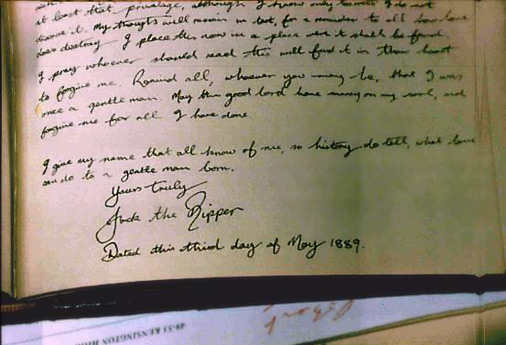 it least that privalage, although I know only heaven I do not
deserve it. My thoughts will remain in text, for a reminder to all how love
does destroy. I place this now in a place were it shall be found.
I pray whoever should read this will find it in their heart
to forgive me. Remind all, whoever you may be, that I was
once a gentle man. May the good lord have mercy on my soul, and
forgive me for all I have done.
I give my name that all know of me, so history do tell, what love
can do to a gentle man born.
Yours truly
Jack the Ripper
Dated this third day of May 1889.
49-53 KENSINGTON HIGH